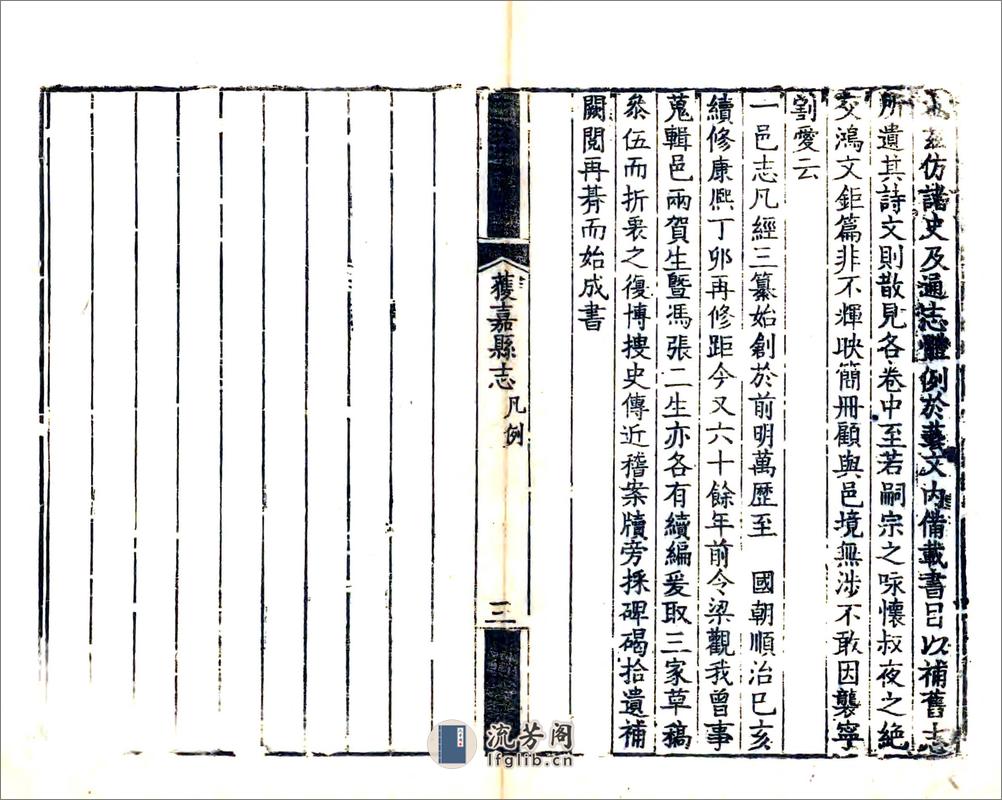 兹仿諸史及通志體例於藝文内備載書目以補舊志
所遺其詩文則散見各卷中至若嗣宗之咏懷叔夜之絶
交鴻文鉅篇非不輝映簡冊顧與邑境無涉不敢因襲寧
割愛云
一邑志凡經三纂始創於前明萬歷至　國朝順治己亥
續修康熈丁夘再修距今又六十餘年前令梁觀我曾事
蒐輯邑兩賀生暨馮張二生亦各有續編爰取三家草稿
叅伍而折衷之復博捜史傳近稽案牘旁採碑碣拾遺補
闕閲再朞而始成書
獲嘉縣志 凡例
三
流芳阁
lfglib.cn